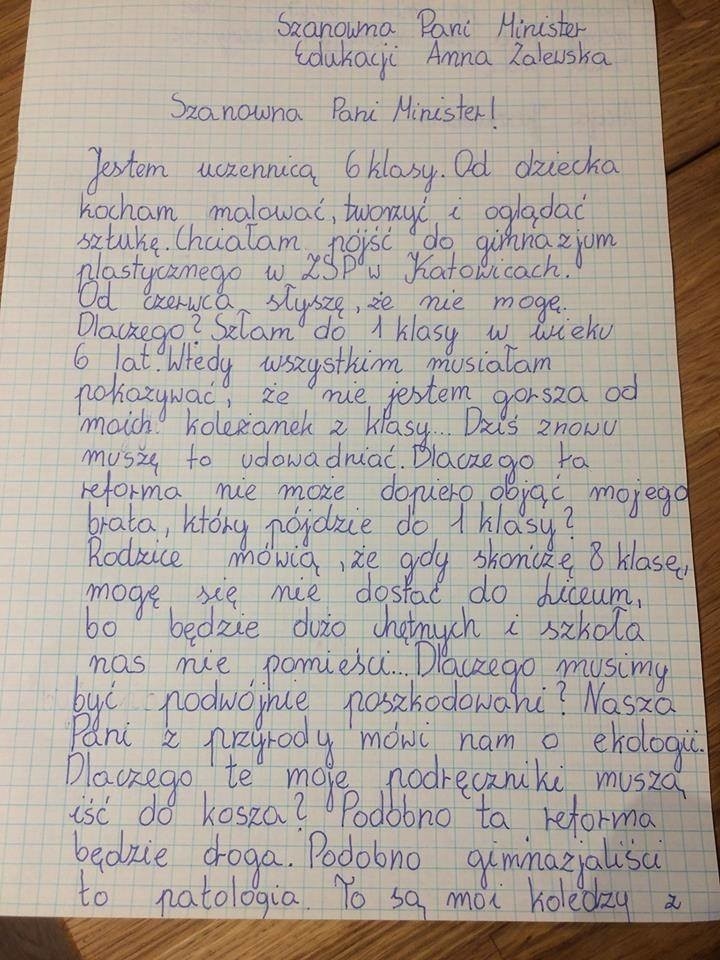 Szanowna Pani Minister
Edukacji Anna Zalewska
Szanowna Pani Minister!
Jestem uczennicą 6 klasy. Od dziecka
kocham malować, tworzyć i oglądać
sztukę. Chciałam pójść do gimnazjum
plastycznego w ZSP w Katowicach.
Od czerwca słyszę, że nie mogę.
Dlaczego? Szłam do 1 klasy w wieku
6 lat. Wtedy wszystkim musiałam
pokazywać, że nie jestem gorsza od
moich koleżanek z klasy... Dziś znowu
muszę to udowadniać. Dlaczego ta
reforma nie może dopiero objąć mojego
brata, który pójdzie do 1 klasy?
Rodzice mówią, że gdy skończę 8 klasę,
mogę się nie dostać do Liceum,
bo będzie dużo chętnych i szkoła
nas nie pomieści... Dlaczego musimy
być podwójnie poszkodowani? Nasza
Pani z przyrody mówi nam o ekologii.
Dlaczego te moje podręczniki muszą
iść do kosza? Podobno ta reforma
będzie droga. Podobno gimnazjaliści
to patologia. To są moi koledzy z